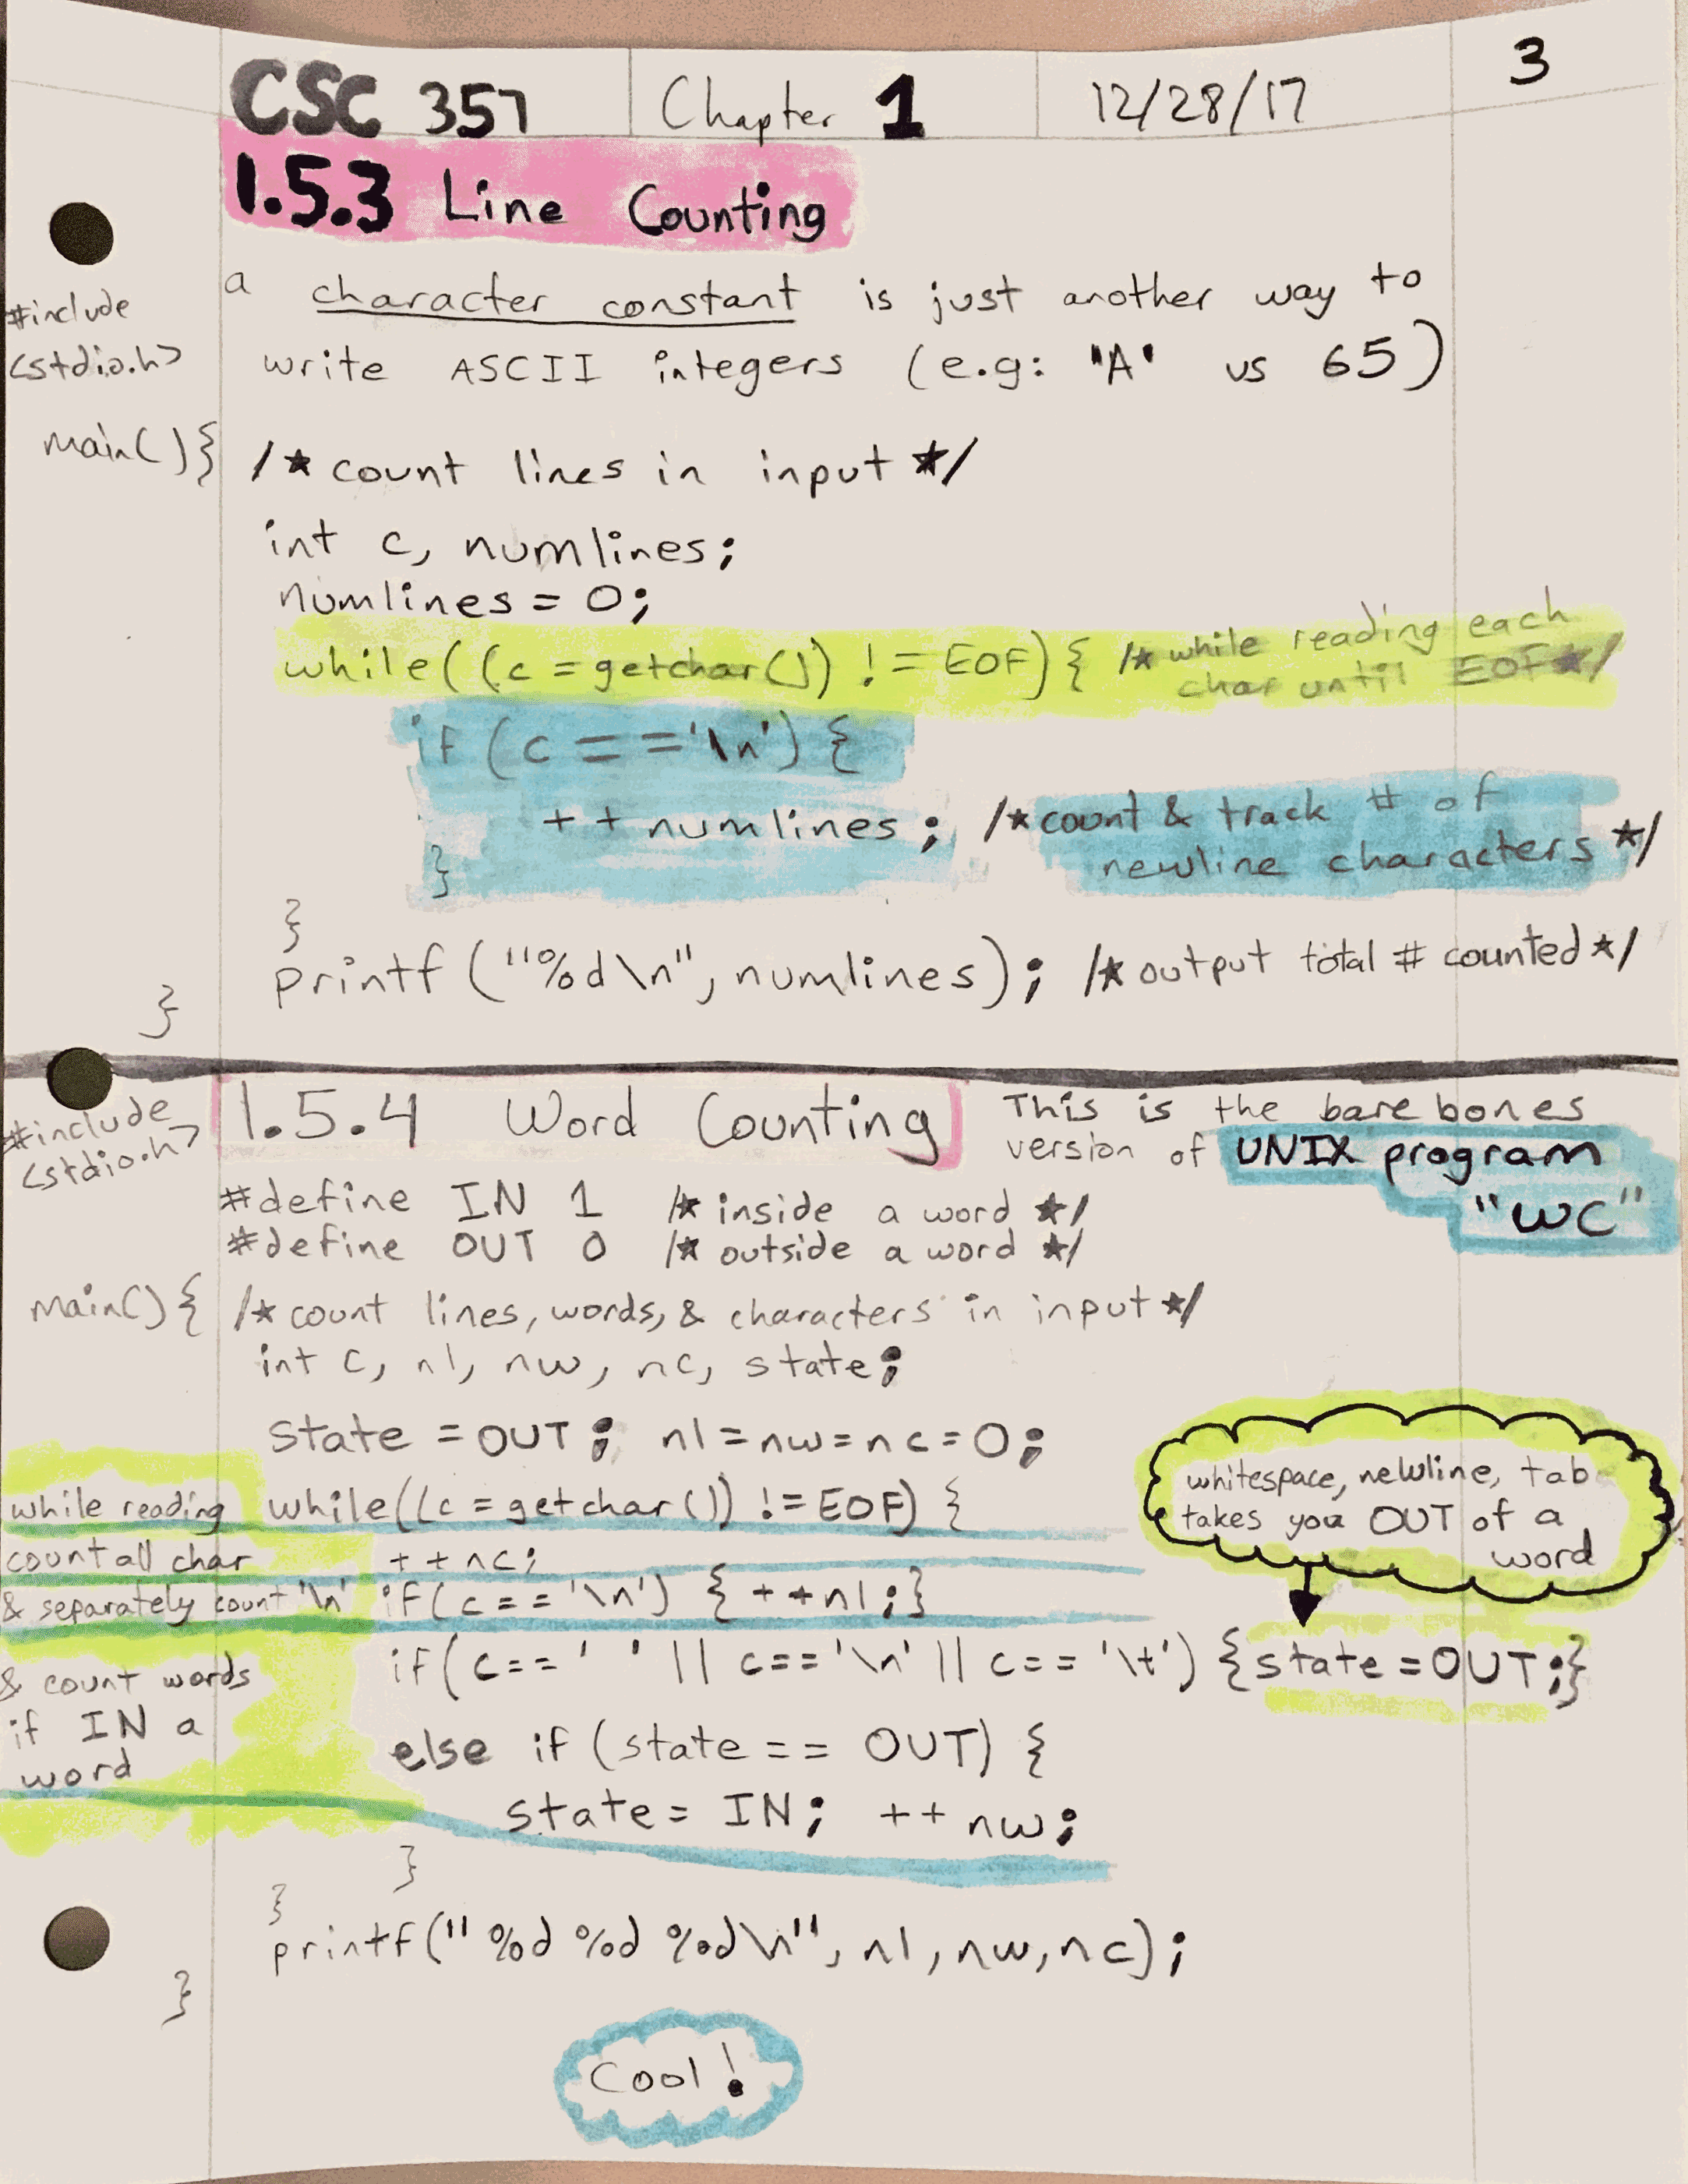 CSC 357 Chapter 1 12/28/17 3
1.5.3 Line Counting
a character constant is just another way to
#include
<stdio.h>
write ASCII integers (e.g: 'A' vs 65)
main(){
/* count lines in input */
int c, numlines;
numlines = 0;
while((c = getchar()) != EOF){ /* while reading each
char until EOF */
if (c == '\n') {
++numlines; /* count & track # of
newline characters */
}
}
printf("%d\n", numlines); /* output total # counted */
}
#include
<stdio.h>
1.5.4 Word Counting
This is the bare bones
version of UNIX program
"wc"
#define IN 1 /* inside a word */
#define OUT 0 /* outside a word */
main(){ /* count lines, words, & characters in input */
int c, nl, nw, nc, state;
state = OUT; nl = nw = nc = 0;
whitespace, newline, tab
takes you OUT of a
word
while reading
while((c = getchar()) != EOF) {
count all char
++nc;
& separately count '\n'
if(c == '\n') { ++nl;}
if(c == ' ' || c == '\n' || c == '\t') {state = OUT;}
& count words
if IN a
word
else if (state == OUT) {
state = IN; ++nw;
}
}
printf("%d %d %d\n", nl, nw, nc);
}
Cool!